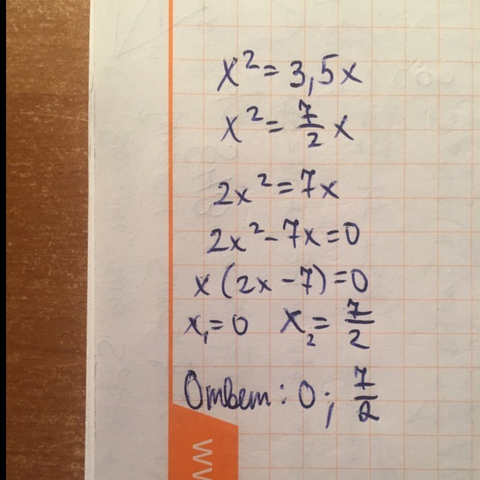 x² = 3,5x
x² = 7/2 x
2x² = 7x
2x² - 7x = 0
x (2x - 7) = 0
x₁ = 0 x₂ = 7/2
Ответ: 0; 7/2